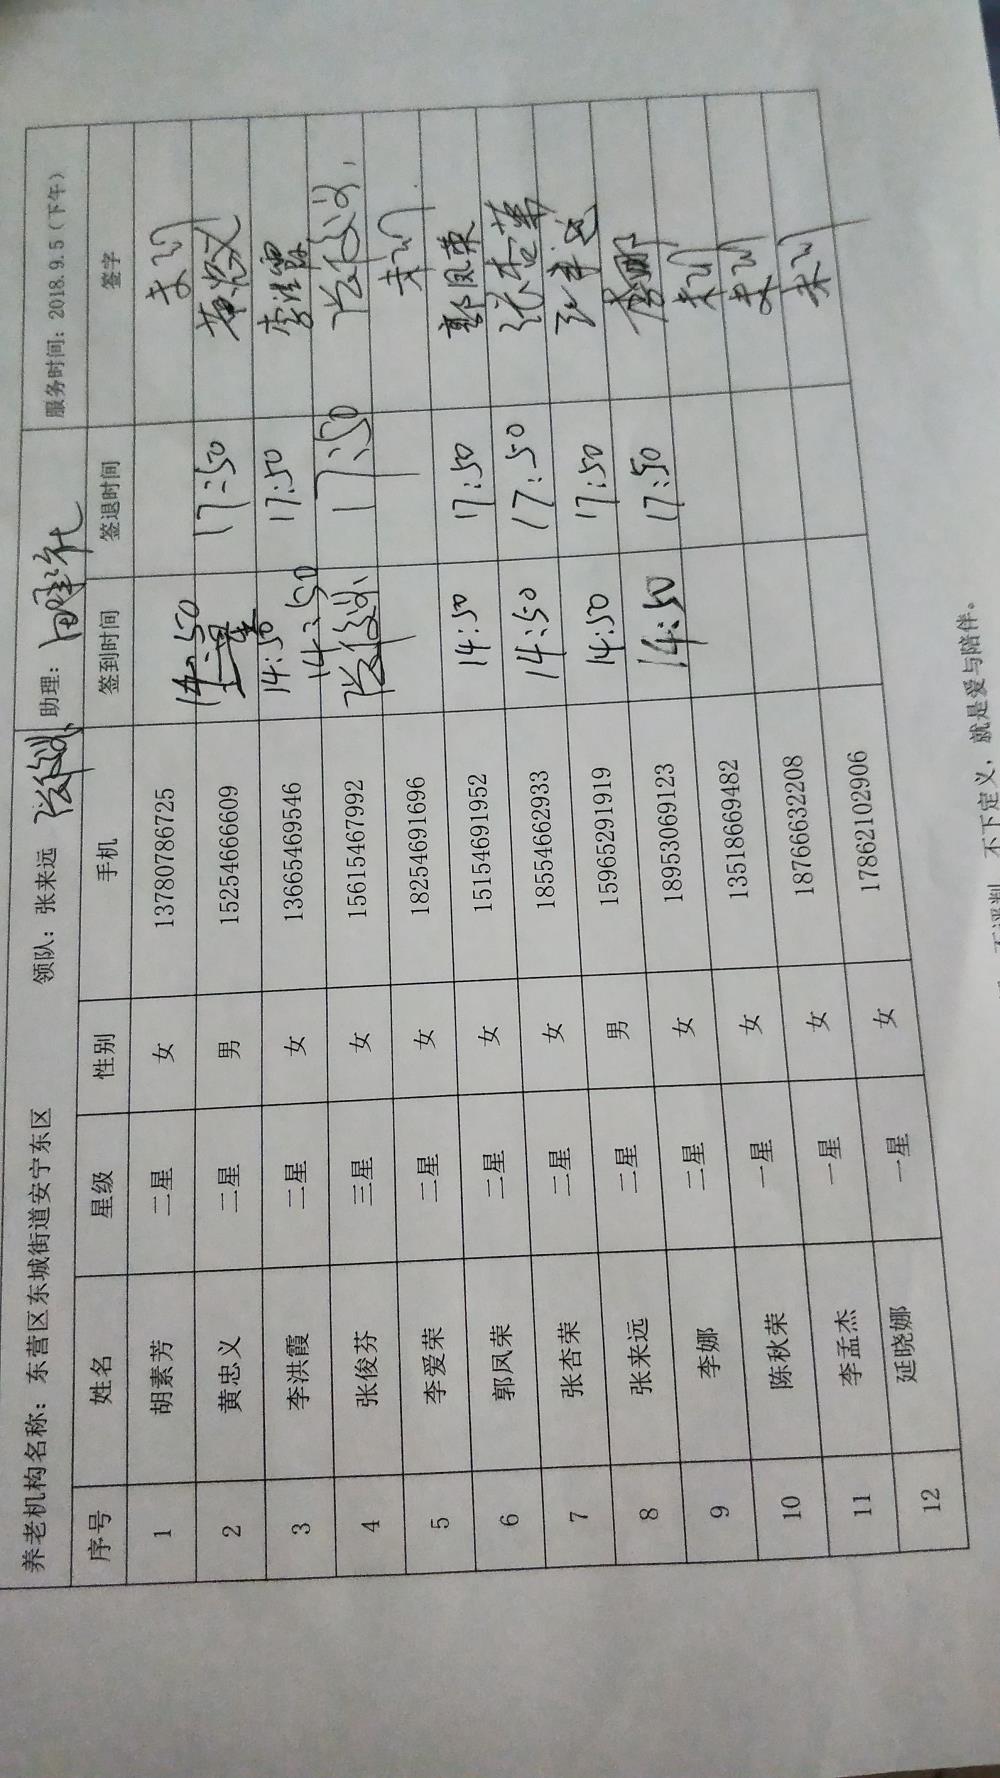 养老机构名称：东营区东城街道安宁东区 领队：张来远 助理： 服务时间：2018.9.5（下午）
序号 姓名 星级 性别 手机 签到时间 签退时间 签字
1 胡素芳 二星 女 13780786725 未到
2 黄忠义 二星 男 15254666609 14:50 17:50 黄忠义
3 李洪霞 二星 女 13665469546 14:50 17:50 李洪霞
4 张俊芬 三星 女 15615467992 14:50 17:50
5 李爱荣 二星 女 18254691696 未到
6 郭凤荣 二星 女 15154691952 14:50 17:50 郭凤荣
7 张杏荣 二星 女 18554662933 14:50 17:50 张杏荣
8 张来远 二星 男 15965291919 14:50 17:50 张来远
9 李娜 二星 女 18953069123 14:50 17:50 李娜
10 陈秋荣 一星 女 13518669482 未到
11 李孟杰 一星 女 18766632208 未到
12 延晓娜 一星 女 17862102906 未到
不评判，不下定义，就是爱与陪伴。